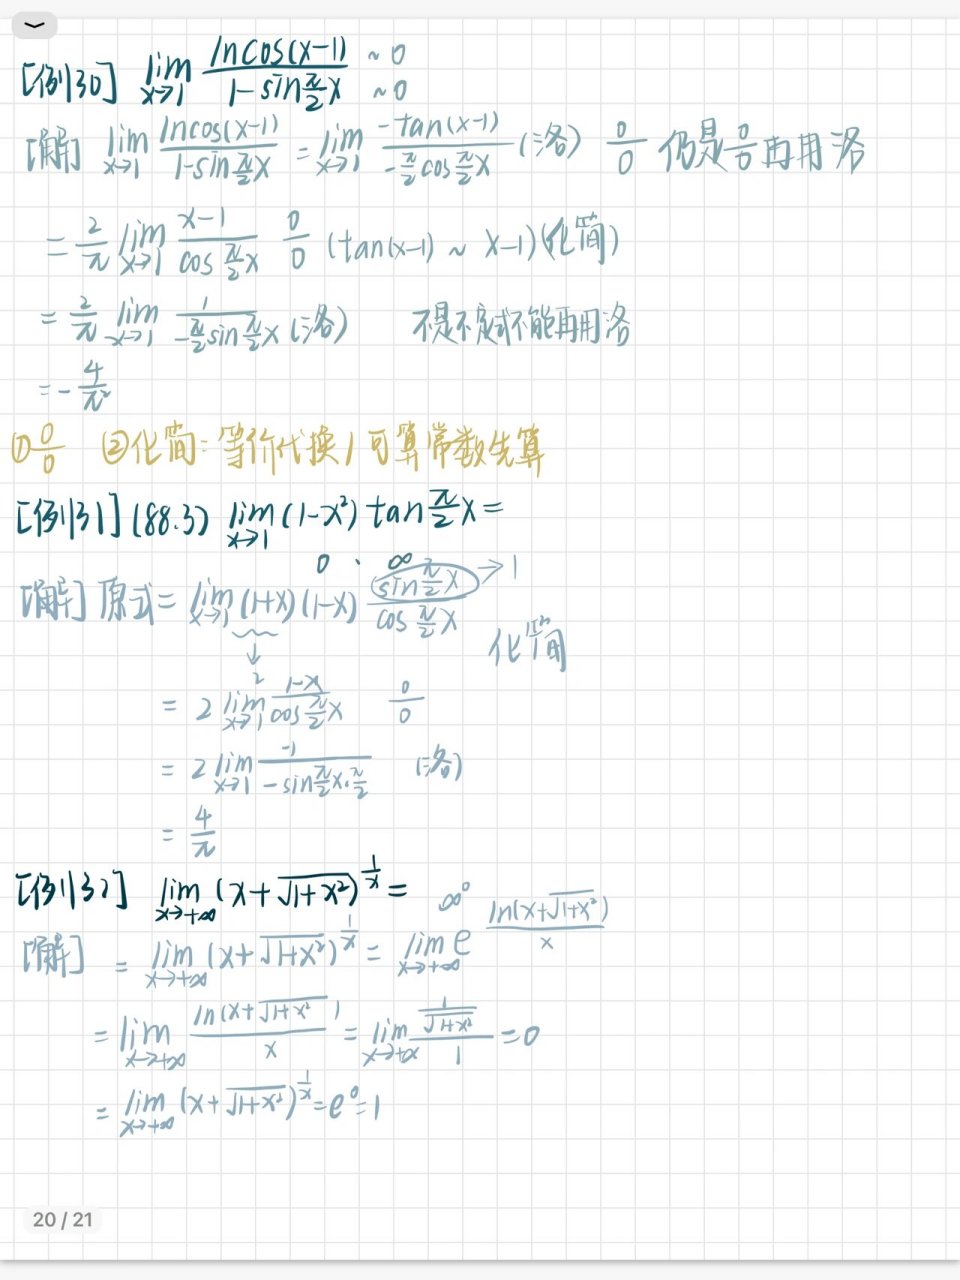 [例130] lim x→1 lncos(x-1) / 1-sin π/2 x ~0 ~0
[解] lim x→1 lncos(x-1) / 1-sin π/2 x = lim x→1 -tan(x-1) / -π/2 cos π/2 x (洛) 0/0 仍是 0/0 再用洛
= 2/π lim x→1 x-1 / cos π/2 x 0/0 (tan(x-1) ~ x-1)(化简)
= 2/π lim x→1 1 / -π/2 sin π/2 x (洛) 不是不定式不能再用洛
= - 4/π²
① 0/0 ②化简: 等价代换 / 可算常数先算
[例131] (88.3) lim x→1 (1-x²) tan π/2 x =
0 · ∞
[解] 原式 = lim x→1 (1+x)(1-x) sin π/2 x / cos π/2 x → 1
↓ 2 化简
= 2 lim x→1 1-x / cos π/2 x 0/0
= 2 lim x→1 -1 / -sin π/2 x · π/2 (洛)
= 4/π
[例132] lim x→+∞ (x+√1+x²)^1/x = ∞⁰
[解] = lim x→+∞ (x+√1+x²)^1/x = lim x→+∞ e^ln(x+√1+x²)/x
= lim x→+∞ ln(x+√1+x²) / x = lim x→+∞ 1/√1+x² / 1 = 0
= lim x→+∞ (x+√1+x²)^1/x = e⁰ = 1
20 / 21